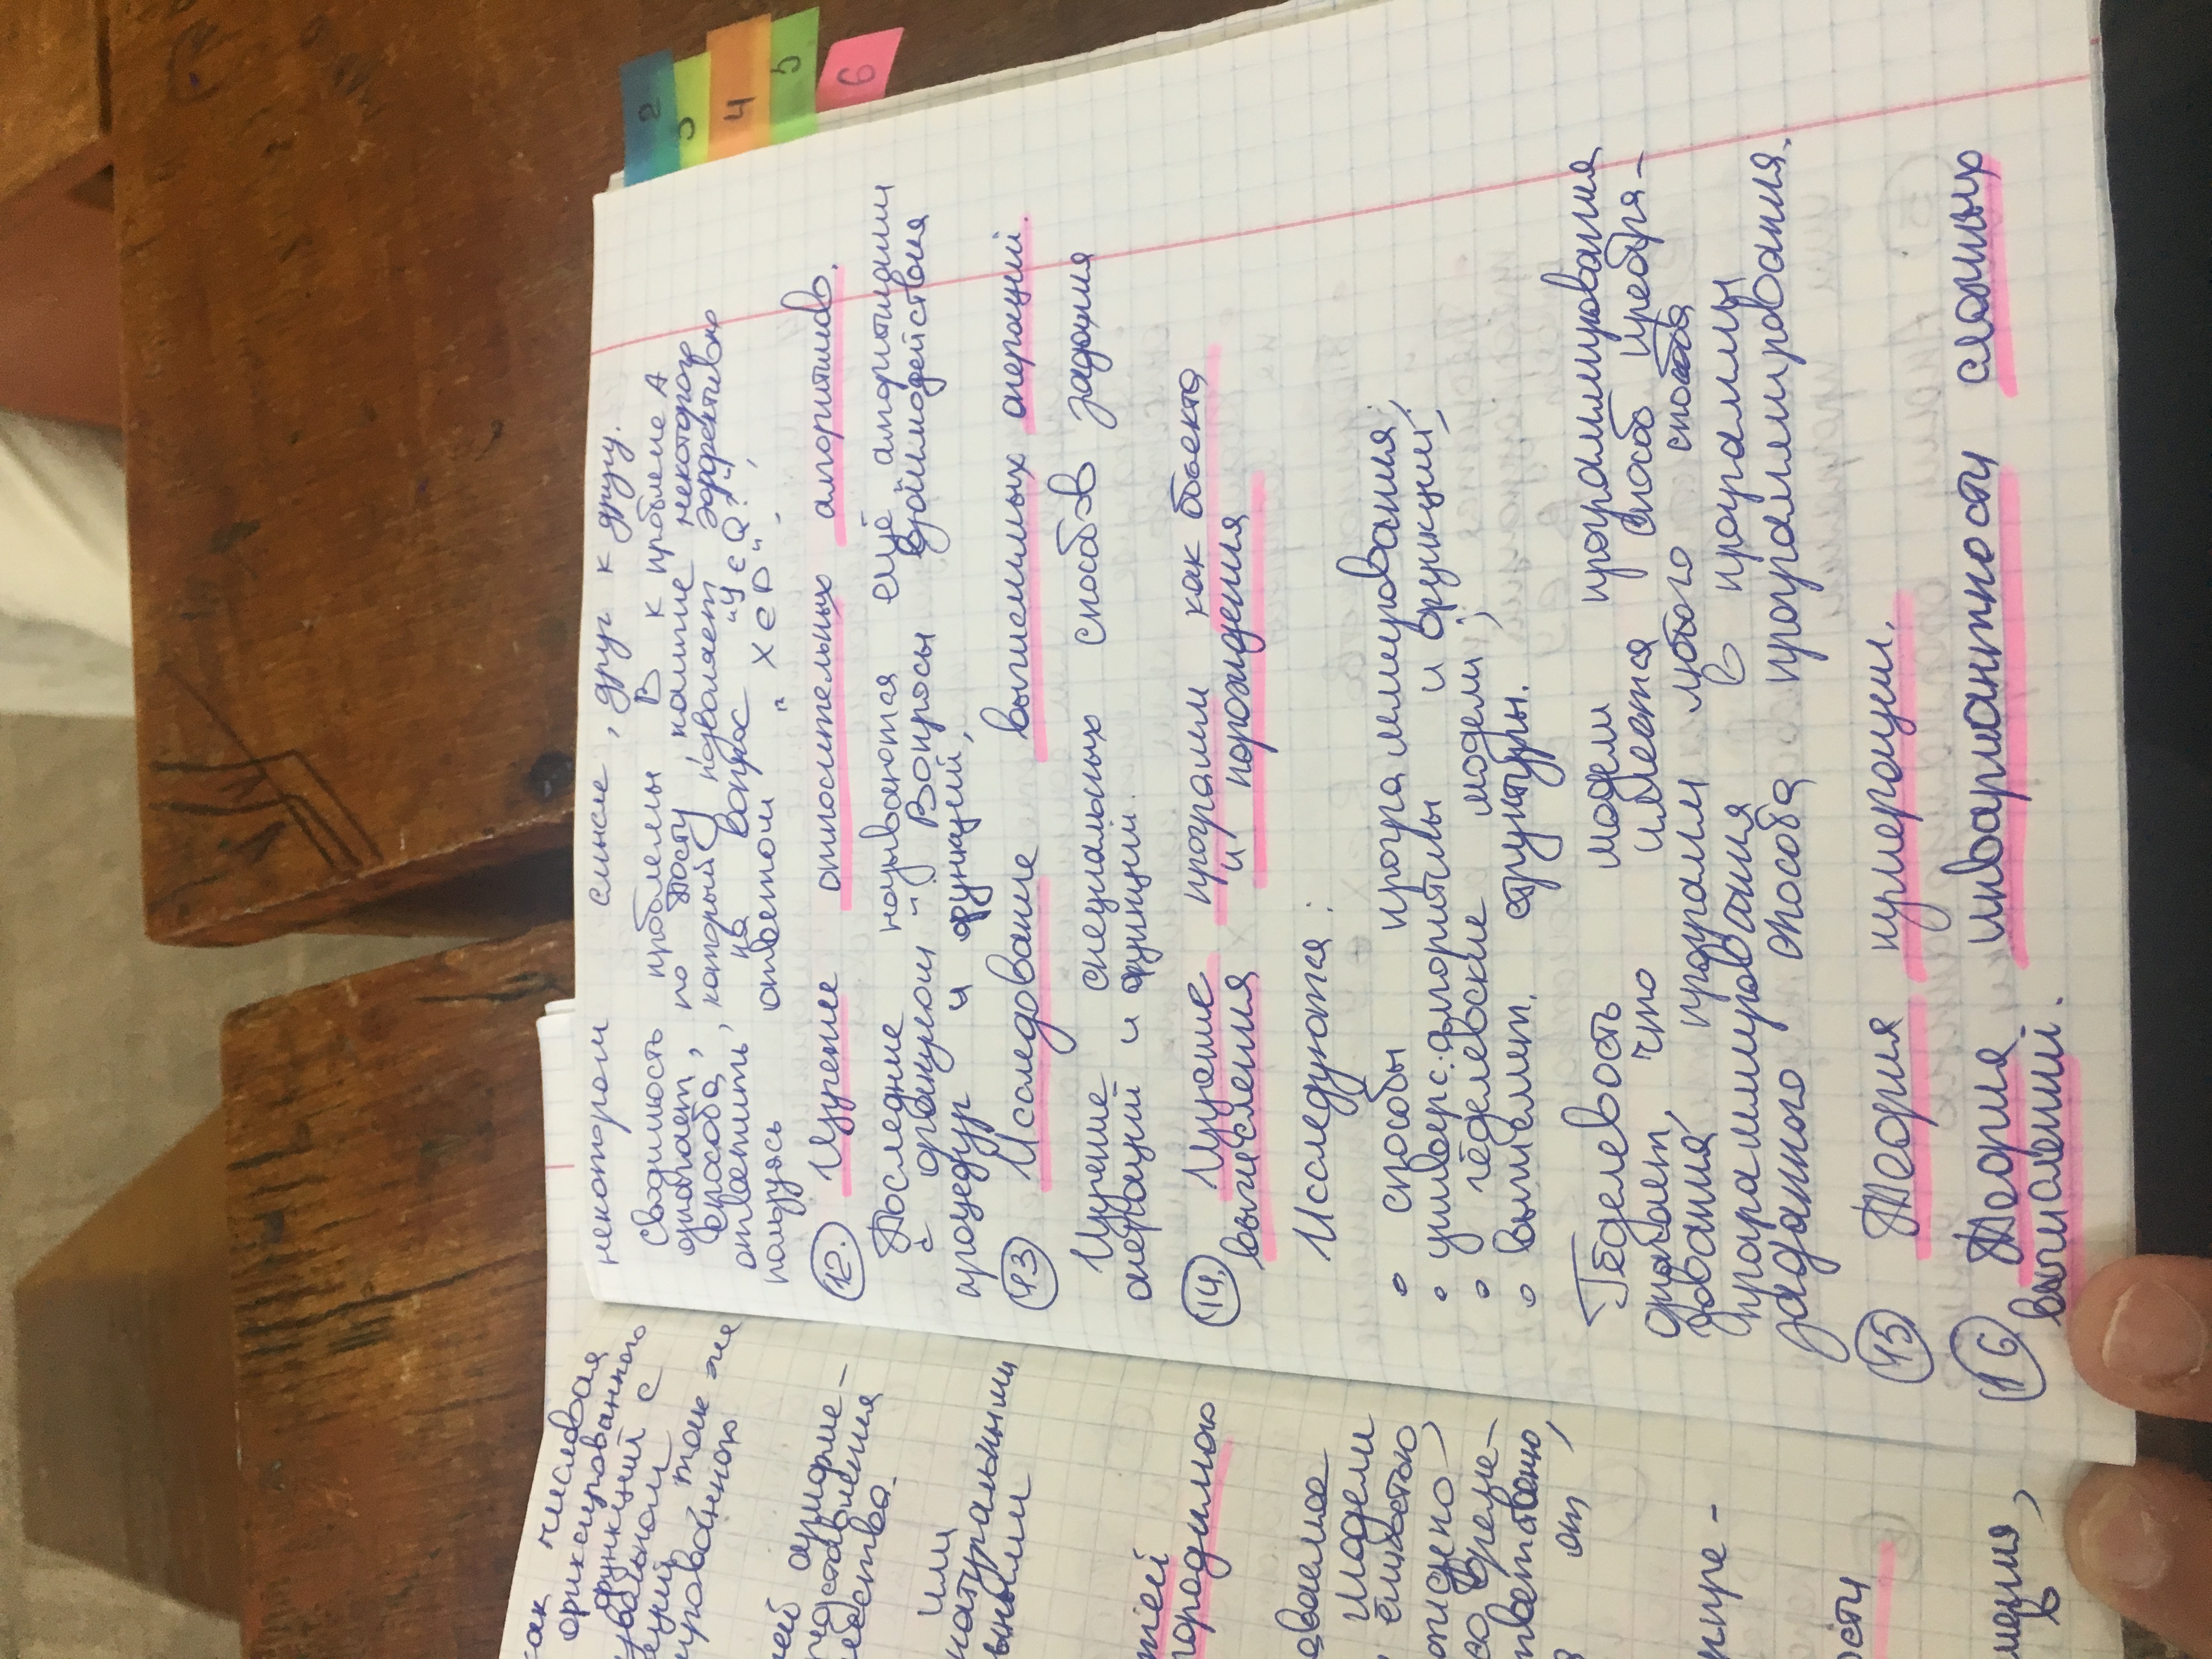 как числовая
фиксированного
функций с
так же
арифме-
представления
или
натуральными
городимою
модели
ёмкостью,
со време-
от
ости
в
некотором смысле, друг к другу.
Сводимость проблемы B к проблеме A
означает, по Посту, наличие некоторого
способа, который позволяет эффективно
ответить на вопрос "Y ∈ Q?",
пользуясь ответом "X ∈ P".
12. Изучение относительных алгоритмов.
Последние называются ещё "алгоритмами
с оракулом". Вопросы взаимодействия
процедур и функций,
13 Исследование вычислимых операций.
Изучение специальных способов задания
операций и функций.
14. Изучение программ как объекта
вычисления и порождения
Исследуются:
• способы программирования;
• универс. алгоритмы и функции;
• гёделевские модели;
• вычислит. структуры.
Гёделевость модели программирования
означает, что имеется способ преобра-
зования программ любого способа
программирования в программы
заданного способа программирования.
15 Теория нумерации.
16 Теория инвариантности сложных
вычислений.
2
3
4
5
6